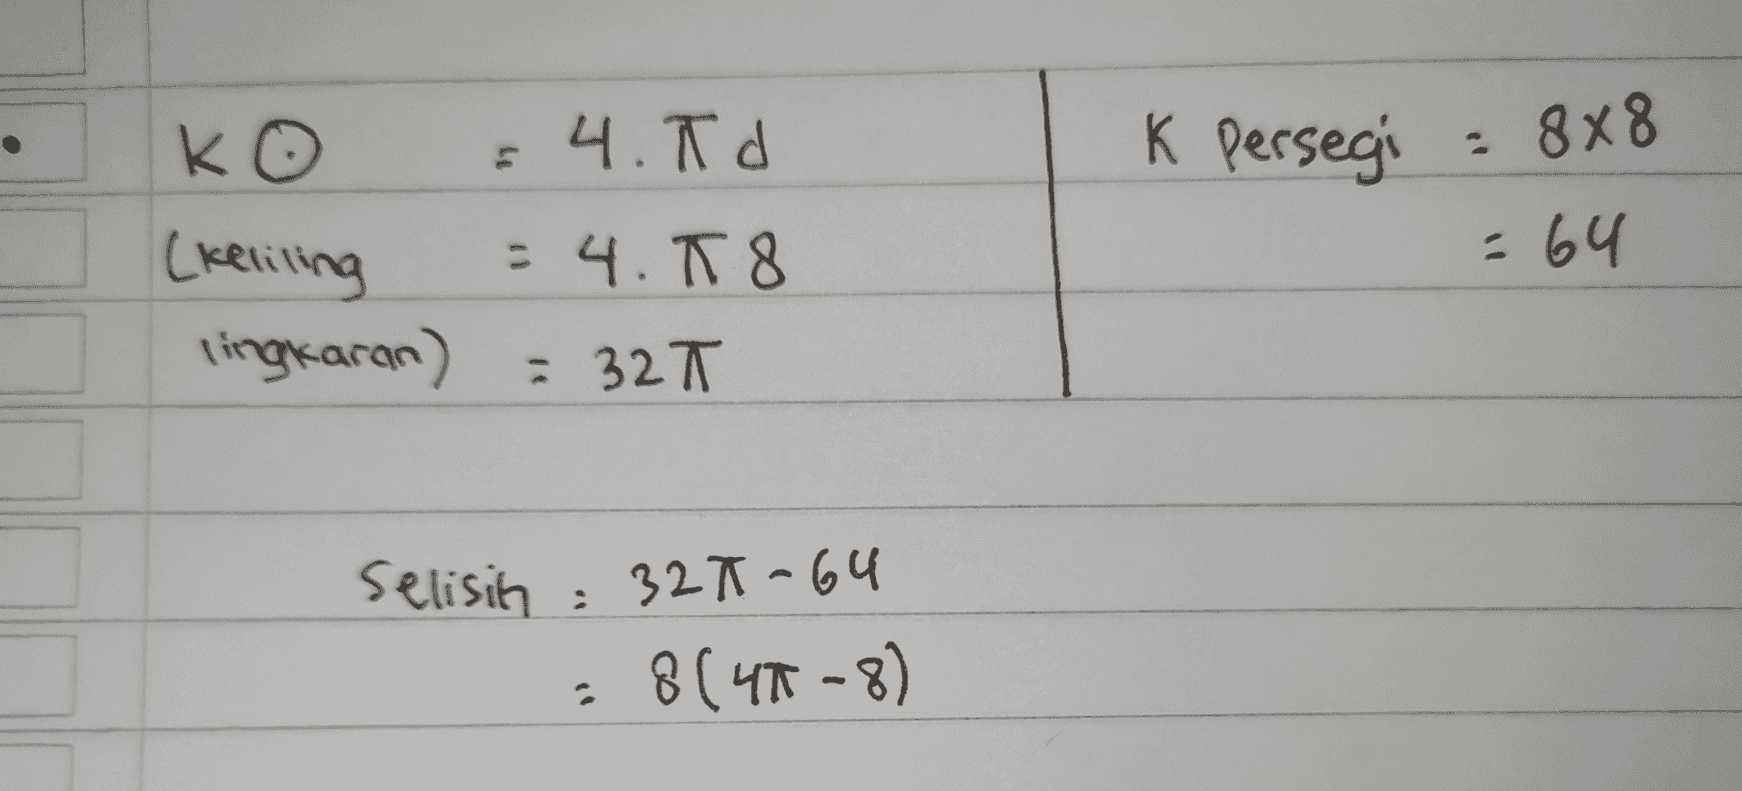 K⊙ = 4.π d
(keliling = 4.π 8
lingkaran) = 32π
K Persegi = 8x8
= 64
Selisih = 32π - 64
= 8(4π - 8)